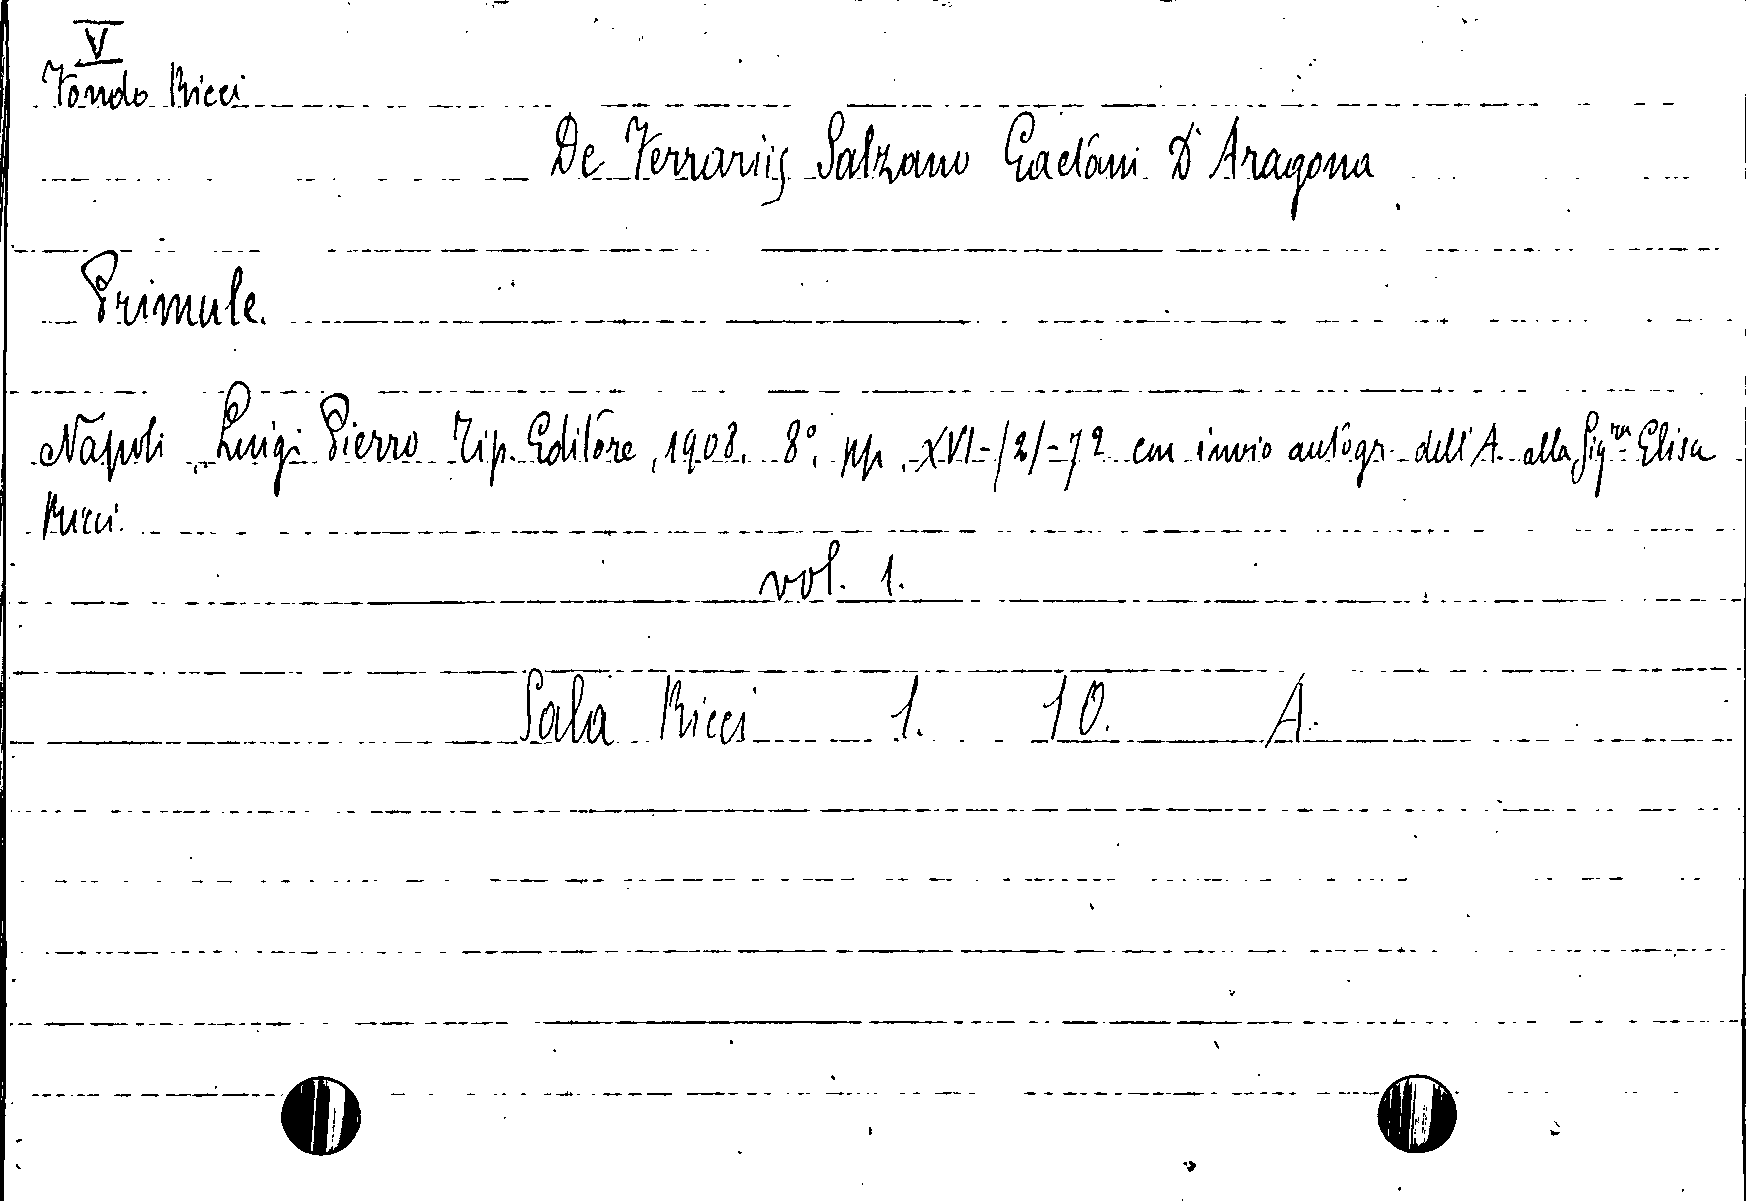 V
Fondo Ricci
De Ferrariis Salzano Gaetani D'Aragona
Primule.
Napoli, Luigi Pierro Tip. Editore, 1908. 8°. pp. XVI-/2/-72 con invio autogr. dell'A. alla Sig.ra Elisa
Ricci.
vol. 1.
Sala Ricci 1. 10. A.